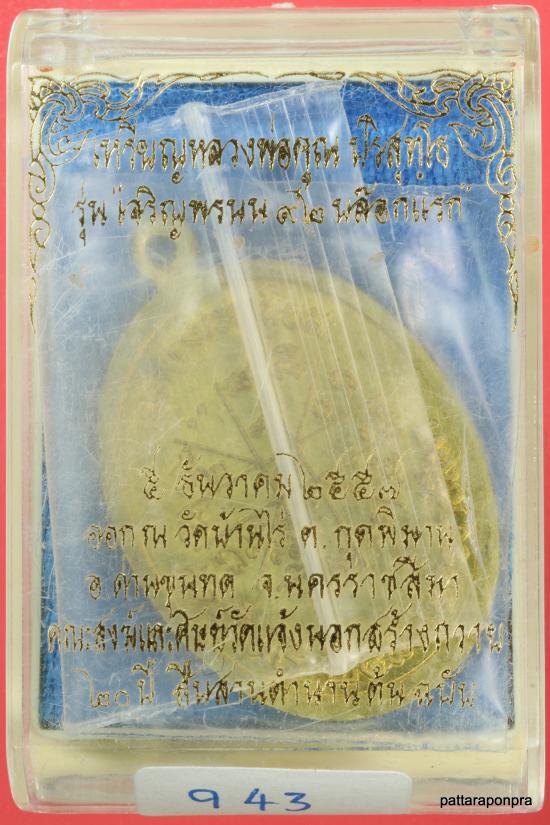 เหรียญหลวงพ่อคูณ ปริสุทฺโธ
รุ่น "เจริญพรบน ๙๒ บล๊อกแรก"
๕ ธันวาคม ๒๕๕๗
ออก ณ วัดบ้านไร่ ต.กุดพิมาน
อ.ด่านขุนทด จ.นครราชสีมา
คณะสงฆ์และศิษย์วัดแจ้งนอกสร้างถวาย
๒๐ ปี สืบสานตำนานต้นฉบับ
943
pattaraponpra